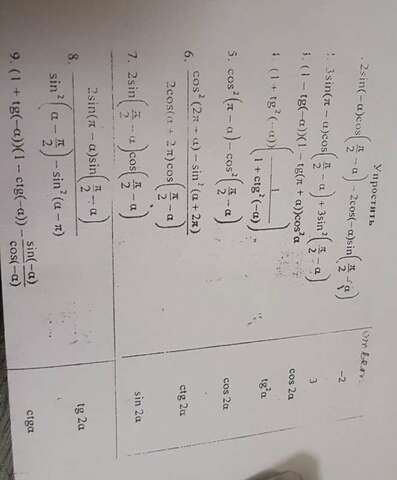 Упростить
Ответ
. 2sin(−α)cos(π/2 − α) − 2cos(−α)sin(π/2 − α)
−2
3sin(π − α)cos(π/2 − α) + 3sin²(π/2 − α)
3
(1 − tg(−α))(1 − tg(π + α))cos²α
cos 2α
(1 + tg²(−α))(1/(1 + ctg²(−α)))
tg²α
5. cos²(π − α) − cos²(π/2 − α)
cos 2α
6. (cos²(2π + α) − sin²(α + 2π))/(2cos(α + 2π)cos(π/2 − α))
ctg 2α
7. 2sin(π/2 − α)cos(π/2 − α)
sin 2α
8. (2sin(π − α)sin(π/2 − α))/(sin²(α − π/2) − sin²(α − π))
tg 2α
9. (1 + tg(−α))(1 − ctg(−α)) − sin(−α)/cos(−α)
ctgα